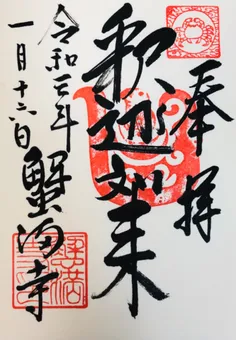 奉拝
釈迦如来
令和二年
一月十六日
蟹満寺